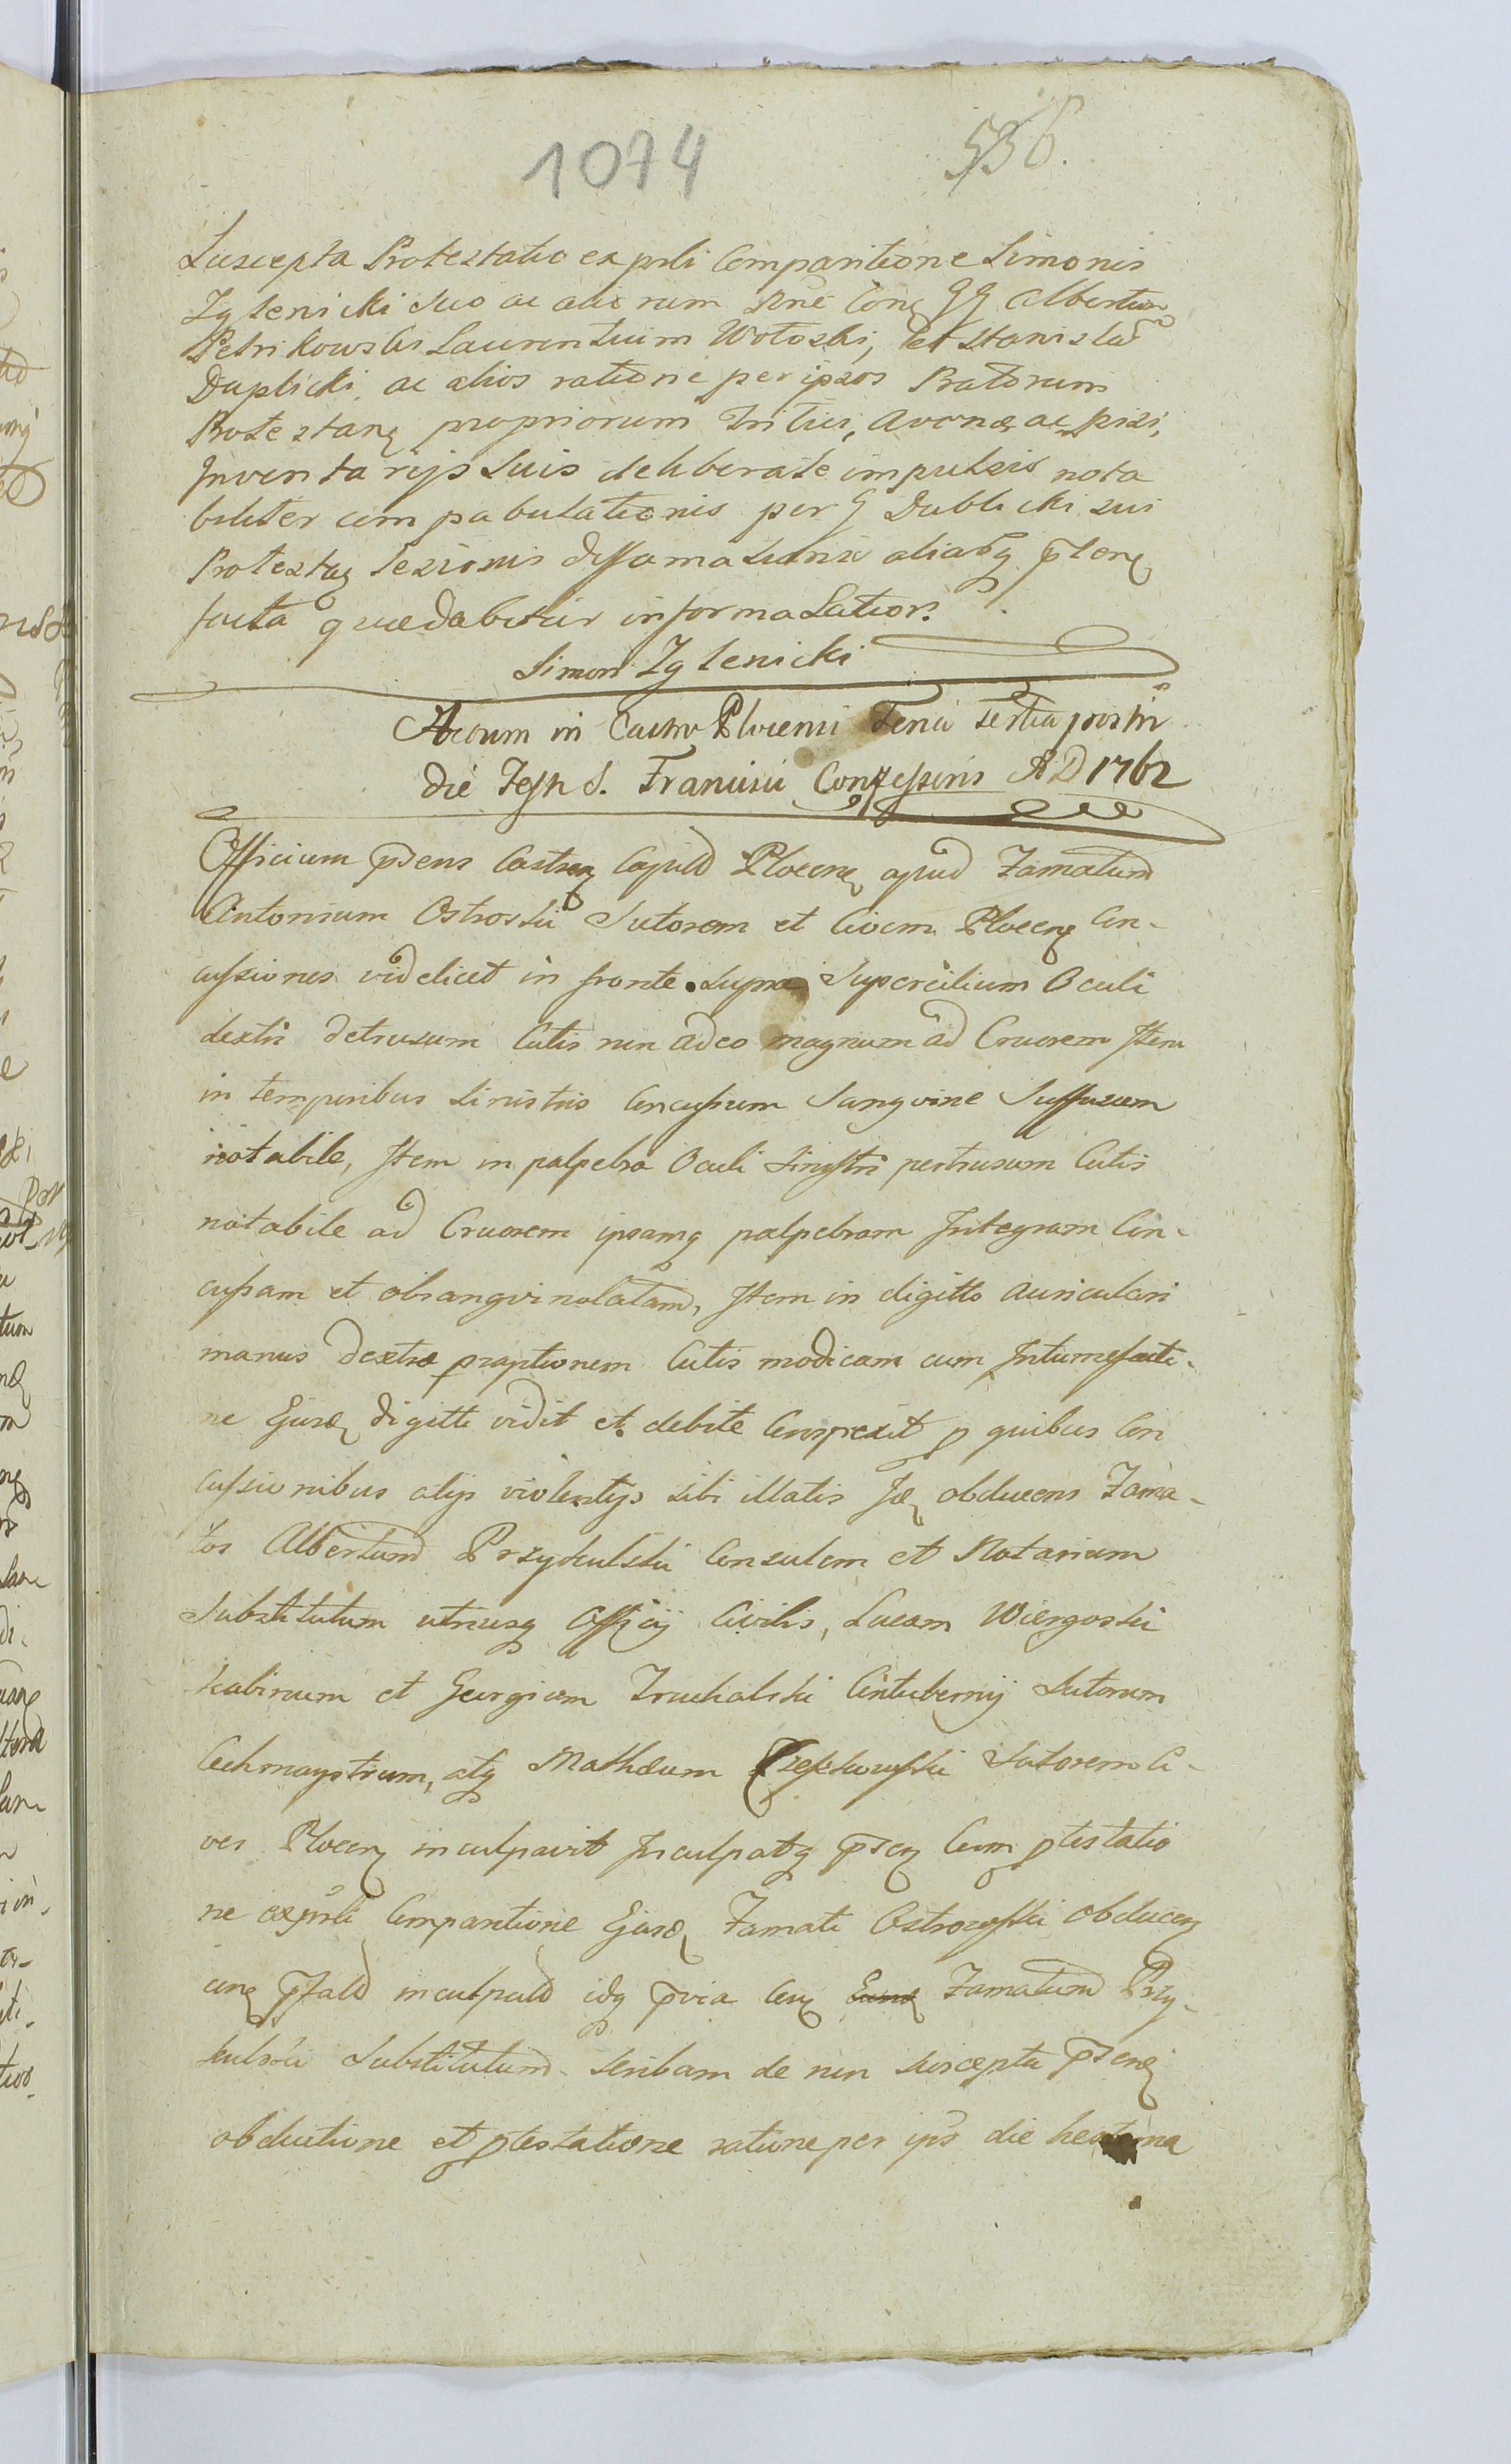 1074
536.
Suscepta Protestatio ex prli Comparitione Simonis
Zglenicki suo ac aliorum nne Conq GG Albertum
Petrikowski Laurentium Wotoski, et Stanisla
Duplicki, ac alios ratione per ipsos Pratorum
Protestanq propriorum Tritici, Avenæ ac pisi,
Inventarijs Suis deliberate impulsis nota
biliter compabulationis per G Dublicki sui
Protestaq lesionis diffamationis aliarq plenq
facta quædabitur informa Lation:
Simon Zglenicki
Actum in Castro Plocensi Feria tertia post in
die Festi S. Francisci Confessoris AD 1762
Officium pñens Castren Capitd Plocenq apud Famatum
Antonium Ostroski Sutorem et Civem Plocenq Con-
cussiones videlicet in fronte supra Supercilium Oculi
dextri detrusum Cutis non adeo magnum ad Cruorem Item
in temporibus sinistris Concussum Sangvine Suffusum
notabile, Item in palpebra Oculi Sinistri pertrusum Cutis
notabile ad Cruorem ipsamq palpebram Integram Con-
cussam et obsangvinolatam, Item in digitto auriculari
manus dextræ præptionem Cutis modicam cum Intumefacti-
ne Ejusd digitti vidit et debite Conspexit p quibus Con
cussionibus alijs violentijs sibi illatis Id obducens Fama-
tos Albertum Przykulski Consulem et Notarium
Substitutum utriusq Officij Civilis, Lucam Wiergoski
Scabinum et Georgium Truchalski Contubernij Sutorum
Cechmaystrum, atq Mathæum Sutorem Ci-
ves Plocenq inculpavit Inculpatq pñsq Cum ptestatio
ne ex prli Comparitione Ejusd Famati Ostrowski obducen
cinq pfatd inculpatd idq pvia Conq Eund Famatum Przy-
kulski Substitutum Scribam de non suscepta pñenq
obductione et ptestatione ratione per ips die hesterna